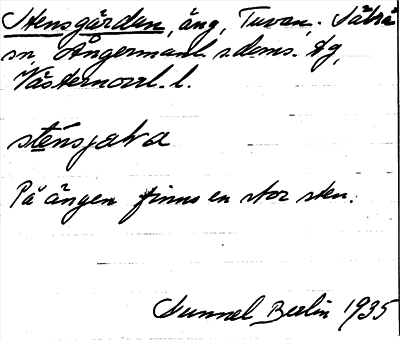 Stensgården, äng, Tuvan, Säbrå
sn, Ångermanl. s. doms. dg,
Västernorrl. l.
sténsjaƚa
På ängen finns en stor sten.
Gunnel Berlin 1935